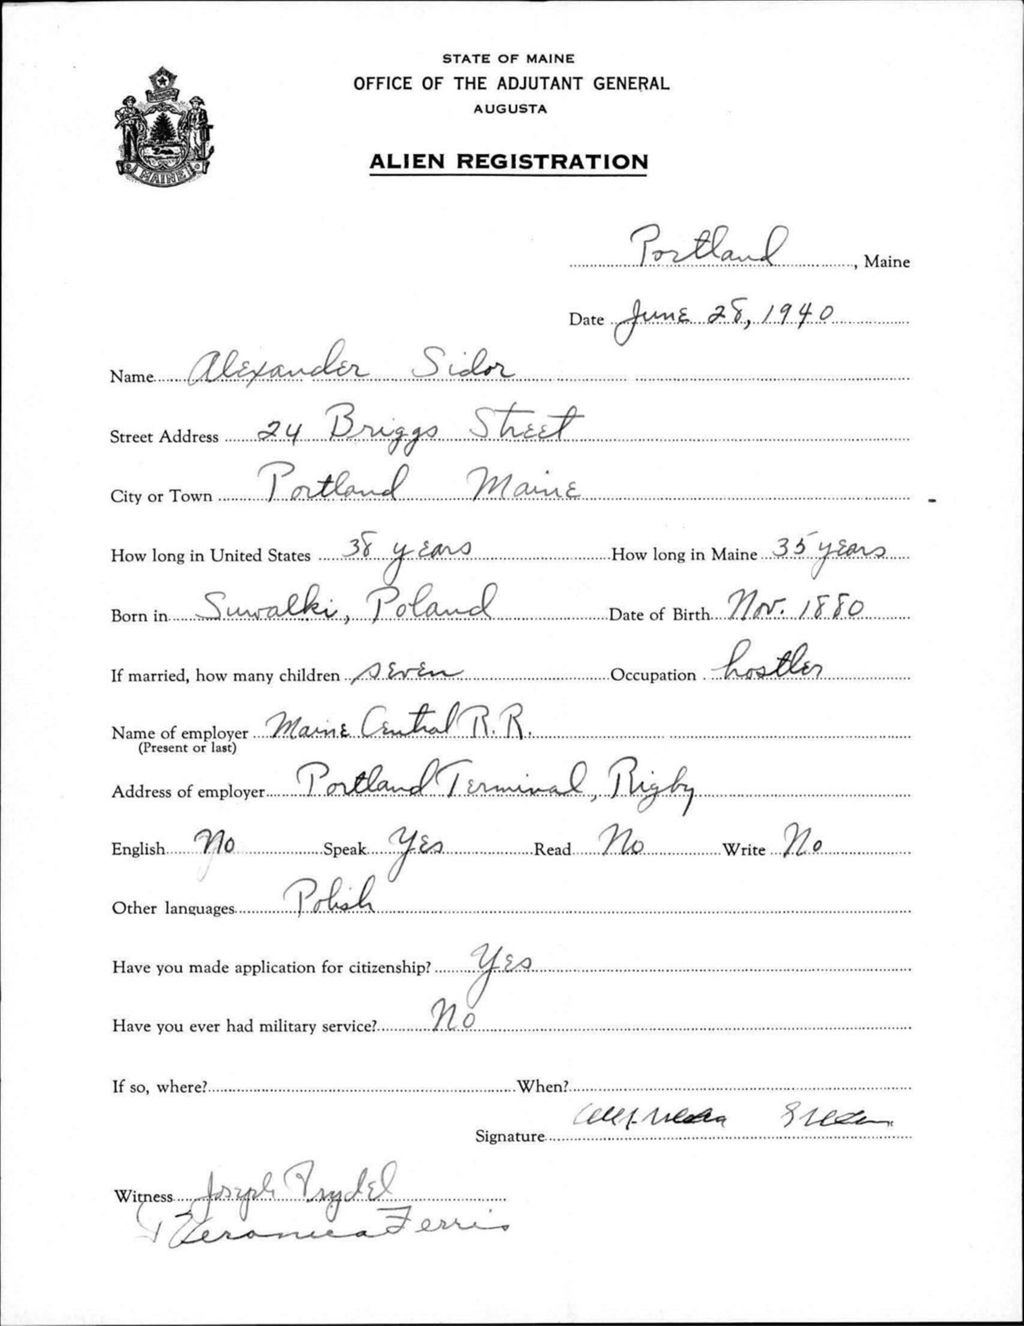 STATE OF MAINE
OFFICE OF THE ADJUTANT GENERAL
AUGUSTA
ALIEN REGISTRATION
MAINE
Portland, Maine
Date June 28, 1940
Name Alexander Sidor
Street Address 24 Briggs Street
City or Town Portland Maine
How long in United States 38 years How long in Maine 35 years
Born in Suwalki, Poland Date of Birth Nov. 1880
If married, how many children seven Occupation hostler
Name of employer Maine Central R.R.
(Present or last)
Address of employer Portland Terminal, Rigby
English No Speak Yes Read No Write No
Other languages Polish
Have you made application for citizenship? Yes
Have you ever had military service? No
If so, where? When?
Signature
Witness Joseph Prydel
Veronica Ferris